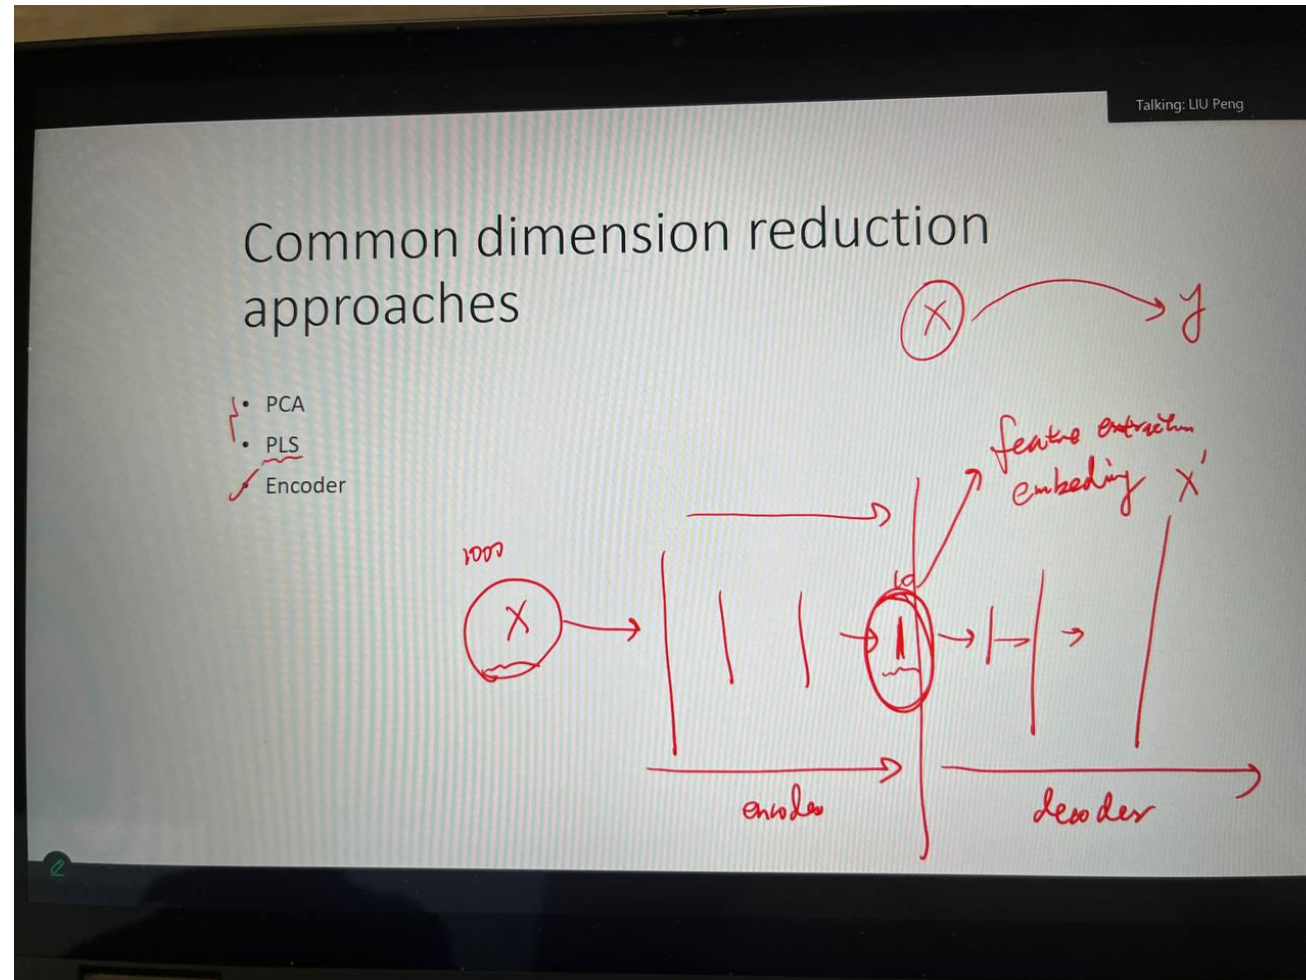 Talking: LIU Peng
Common dimension reduction
approaches
X
y
• PCA
• PLS
• Encoder
feature extraction
embeding X'
1000
X
10
encoder
decoder